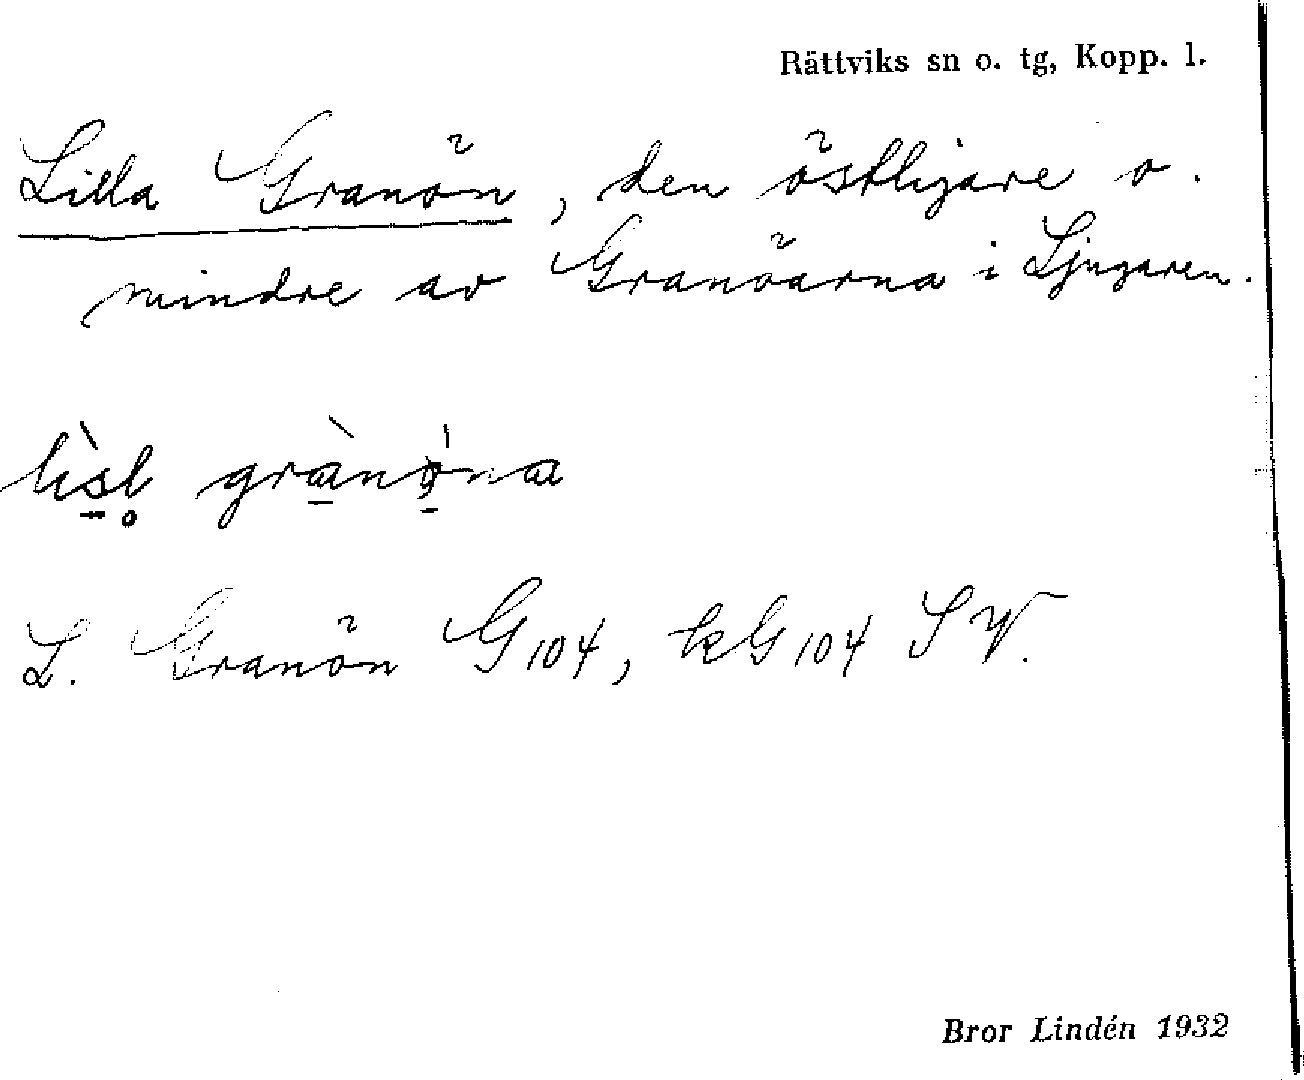 Rättviks sn o. tg, Kopp. l.
Lilla Granön, den östligare o.
mindre av Granöarna i Ljugaren.
L. Granön G104, kG104 SV.
Bror Lindén 1932